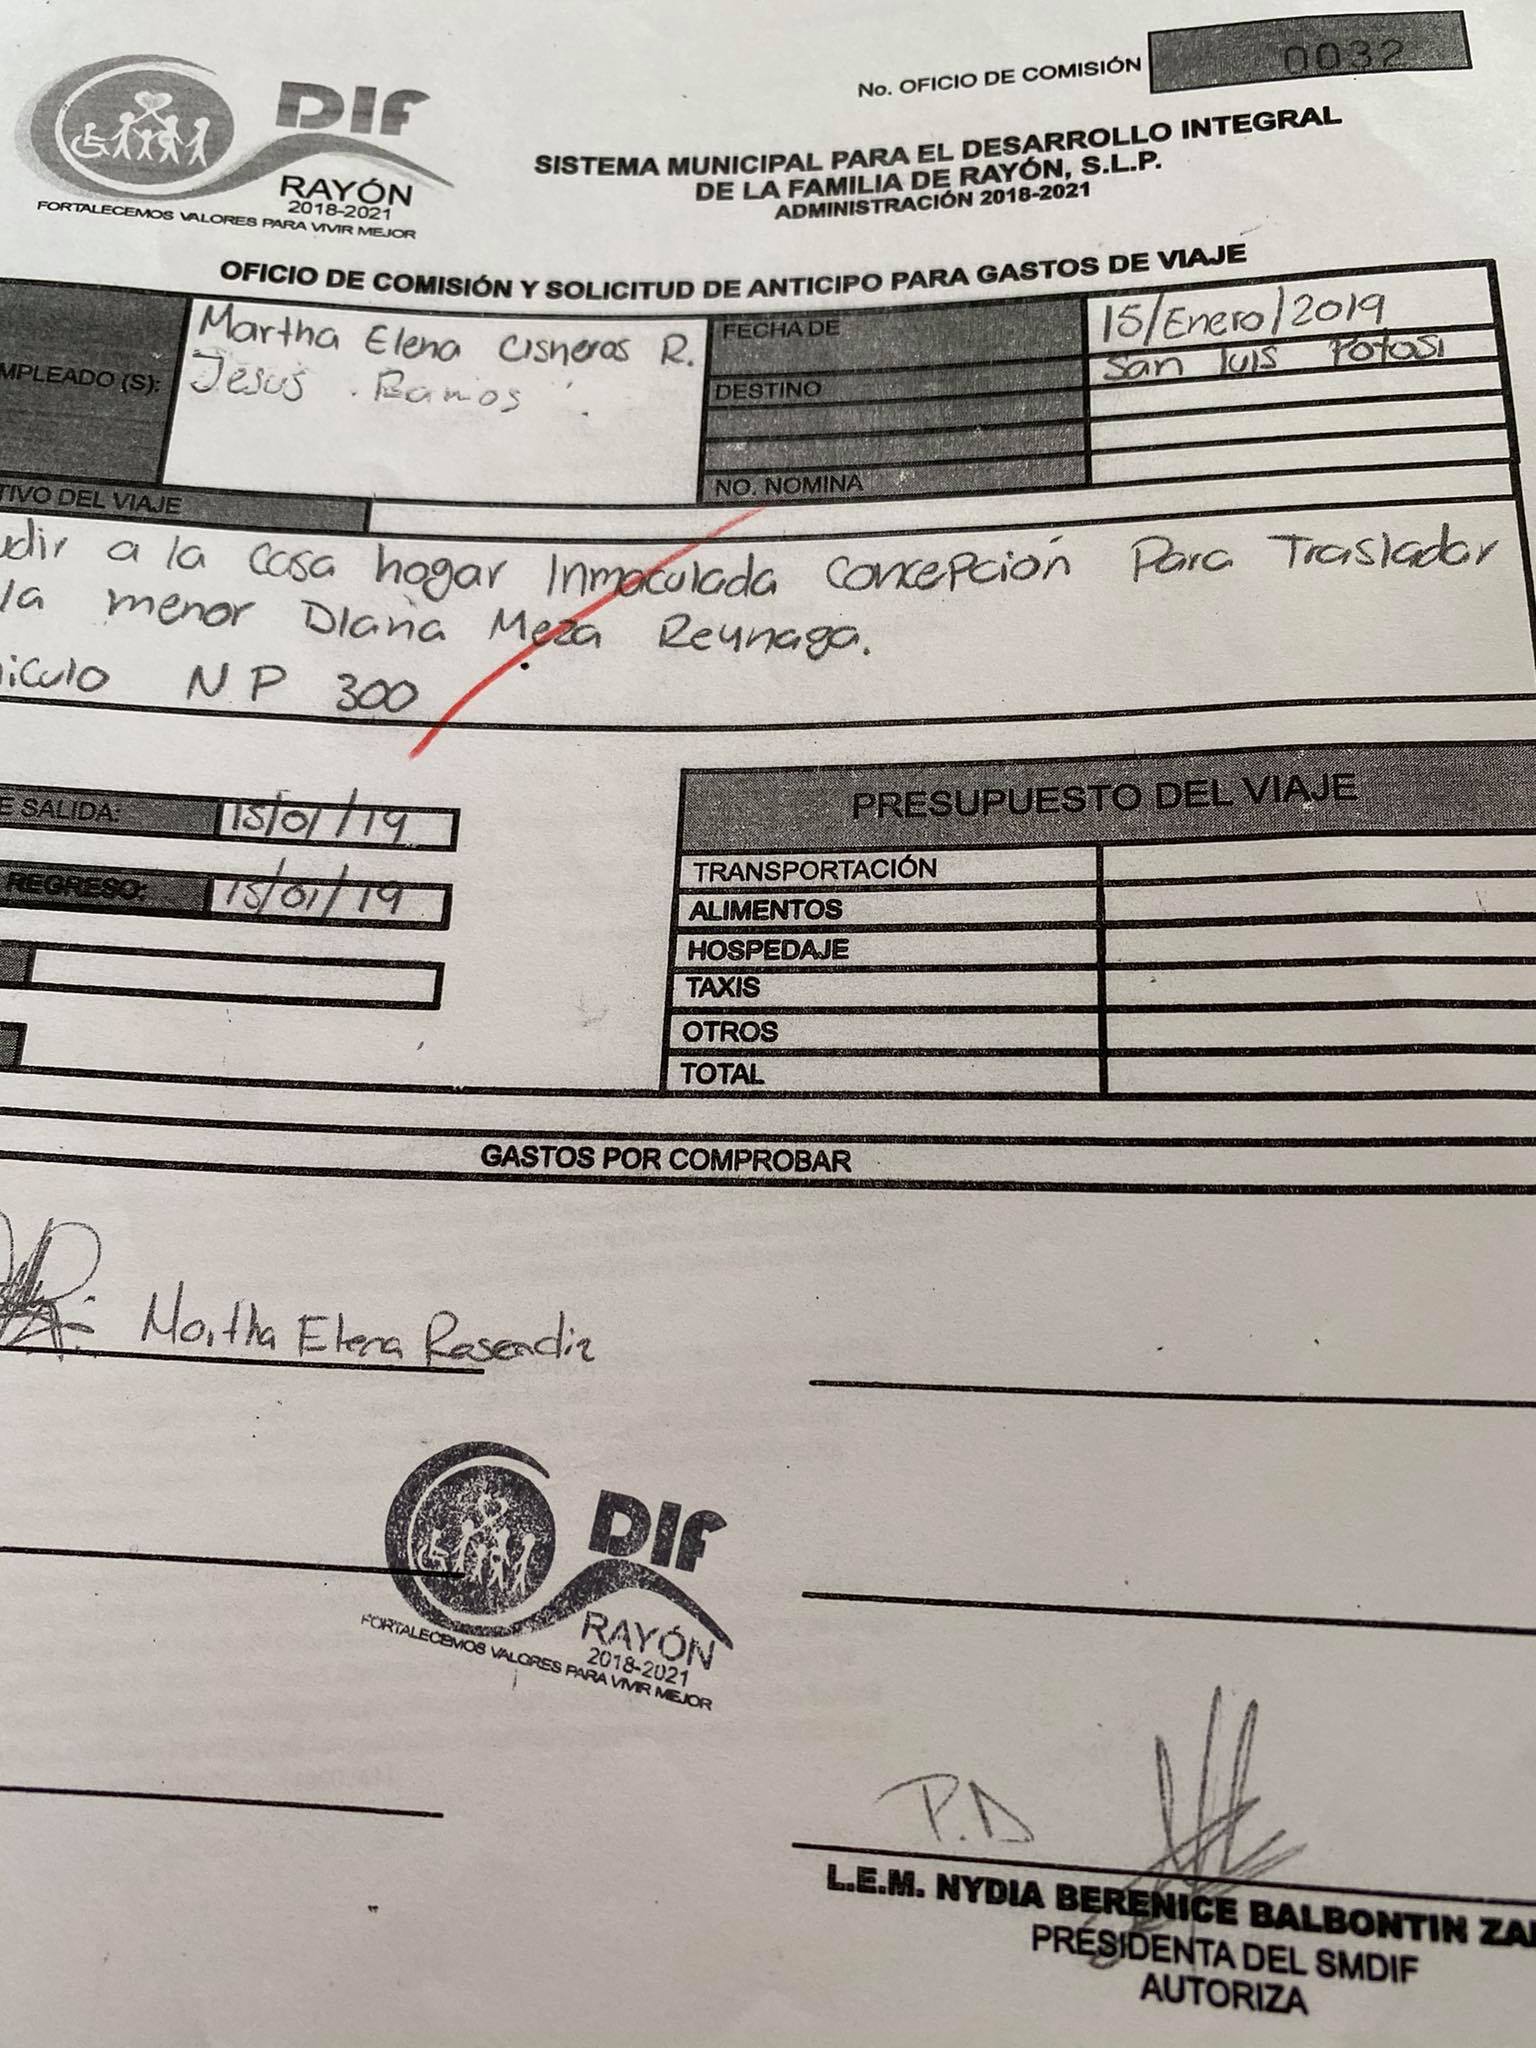 No. OFICIO DE COMISIÓN 0032
DIF
RAYÓN
2018-2021
FORTALECEMOS VALORES PARA VIVIR MEJOR
SISTEMA MUNICIPAL PARA EL DESARROLLO INTEGRAL
DE LA FAMILIA DE RAYÓN, S.L.P.
ADMINISTRACIÓN 2018-2021
OFICIO DE COMISIÓN Y SOLICITUD DE ANTICIPO PARA GASTOS DE VIAJE
MPLEADO (S):
Martha Elena Cisneros R.
Jesus Ramos
FECHA DE 15/Enero/2019
DESTINO San Luis Potosi
NO. NOMINA
TIVO DEL VIAJE
udir a la casa hogar Inmaculada Concepción Para Trasladar
la menor Diana Meza Reynaga.
iculo NP 300
E SALIDA: 15/01/19
REGRESO: 15/01/19
PRESUPUESTO DEL VIAJE
TRANSPORTACIÓN
ALIMENTOS
HOSPEDAJE
TAXIS
OTROS
TOTAL
GASTOS POR COMPROBAR
Martha Elena Rosendiz
DIF
RAYÓN
2018-2021
FORTALECEMOS VALORES PARA VIVIR MEJOR
P.A
L.E.M. NYDIA BERENICE BALBONTIN ZA
PRESIDENTA DEL SMDIF
AUTORIZA